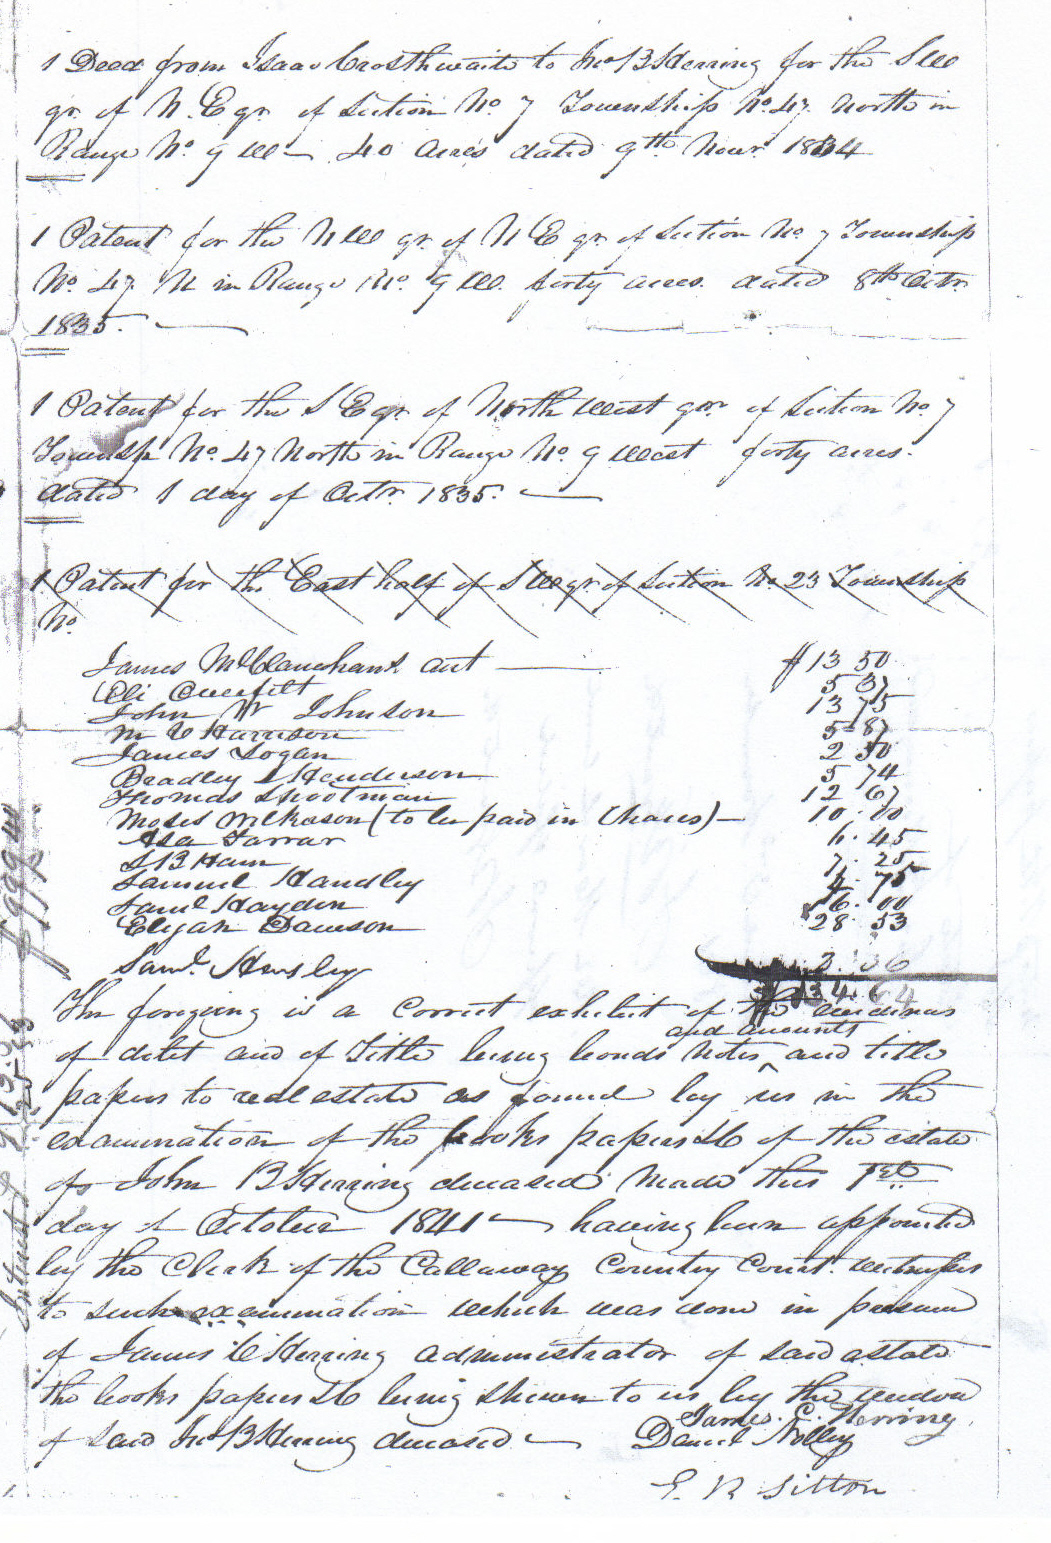 1 Deed from Isaac Crosthwaite to Jno B Herring for the S W
qr. of N. E qr. of Section No. 7 Township No. 47 North in
Range No. 9 W 40 acres dated 9th Novr. 1834
1 Patent for the N W qr. of N E qr. of Section No 7 Township
No. 47 N in Range No. 9 W. forty acres. dated 8th Octr.
1835.
1 Patent for the S E qr. of North West qr. of Section No. 7
Township No. 47 North in Range No. 9 West forty acres.
dated 1 day of Octr. 1835.
1 Patent for the East half of S W qr. of Section No. 23 Township
No.
James McClanahan act $ 13 50
Eli 5 37
John W Johnson 13 75
M C Harrison 5 87
James Logan 2 50
Bradley Henderson 5 74
Thomas Shootman 12 67
Moses Wilkason (to be paid in Chares) 10.00
Asa Farrar 6.45
S B Ham 7.25
Samuel Handley 4.75
Saml Hayden 16.00
Elijah Dawson 28 53
Saml. Hensley 3.36
134.64
The foregoing is a correct exhibit of the evidences
and amounts
of debt and of Title being bonds notes ^ and title
papers to real estate as found by us in the
examination of the books papers &c of the estate
of John B Herring deceased made this 1st
day of October 1841 having been appointed
by the Clerk of the Callaway County Court witnesses
to such examination which was done in presence
of James C Herring administrator of said estate
the books papers &c being shewn to us by the widow
of said Jno B Herring deceased
James. C. Herring.
Daniel Nolley
E. R Sitton
Interest